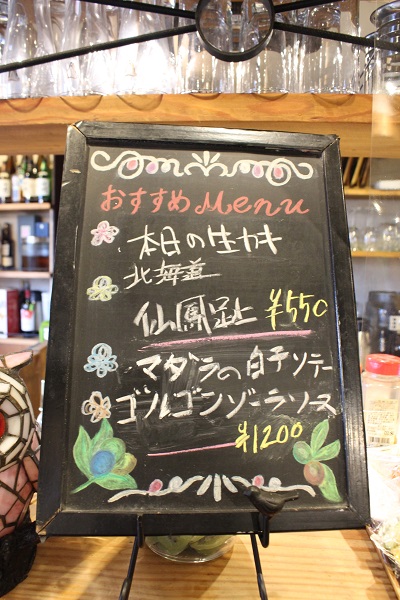 おすすめ Menu
本日の生カキ
北海道
仙鳳趾 ¥550
マダラの白子ソテー
ゴルゴンゾーラソース
¥1200